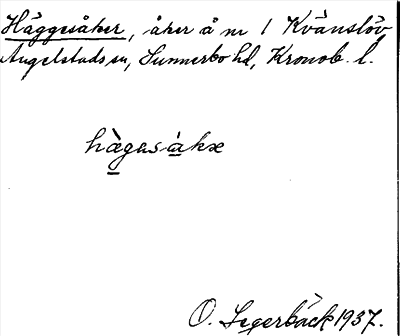 Häggesåker, åker å nr 1 Kvänslöv
Angelstads sn, Sunnerbo hd, Kronob. l.
hàgasåkæ
O. Segerbäck 1937.